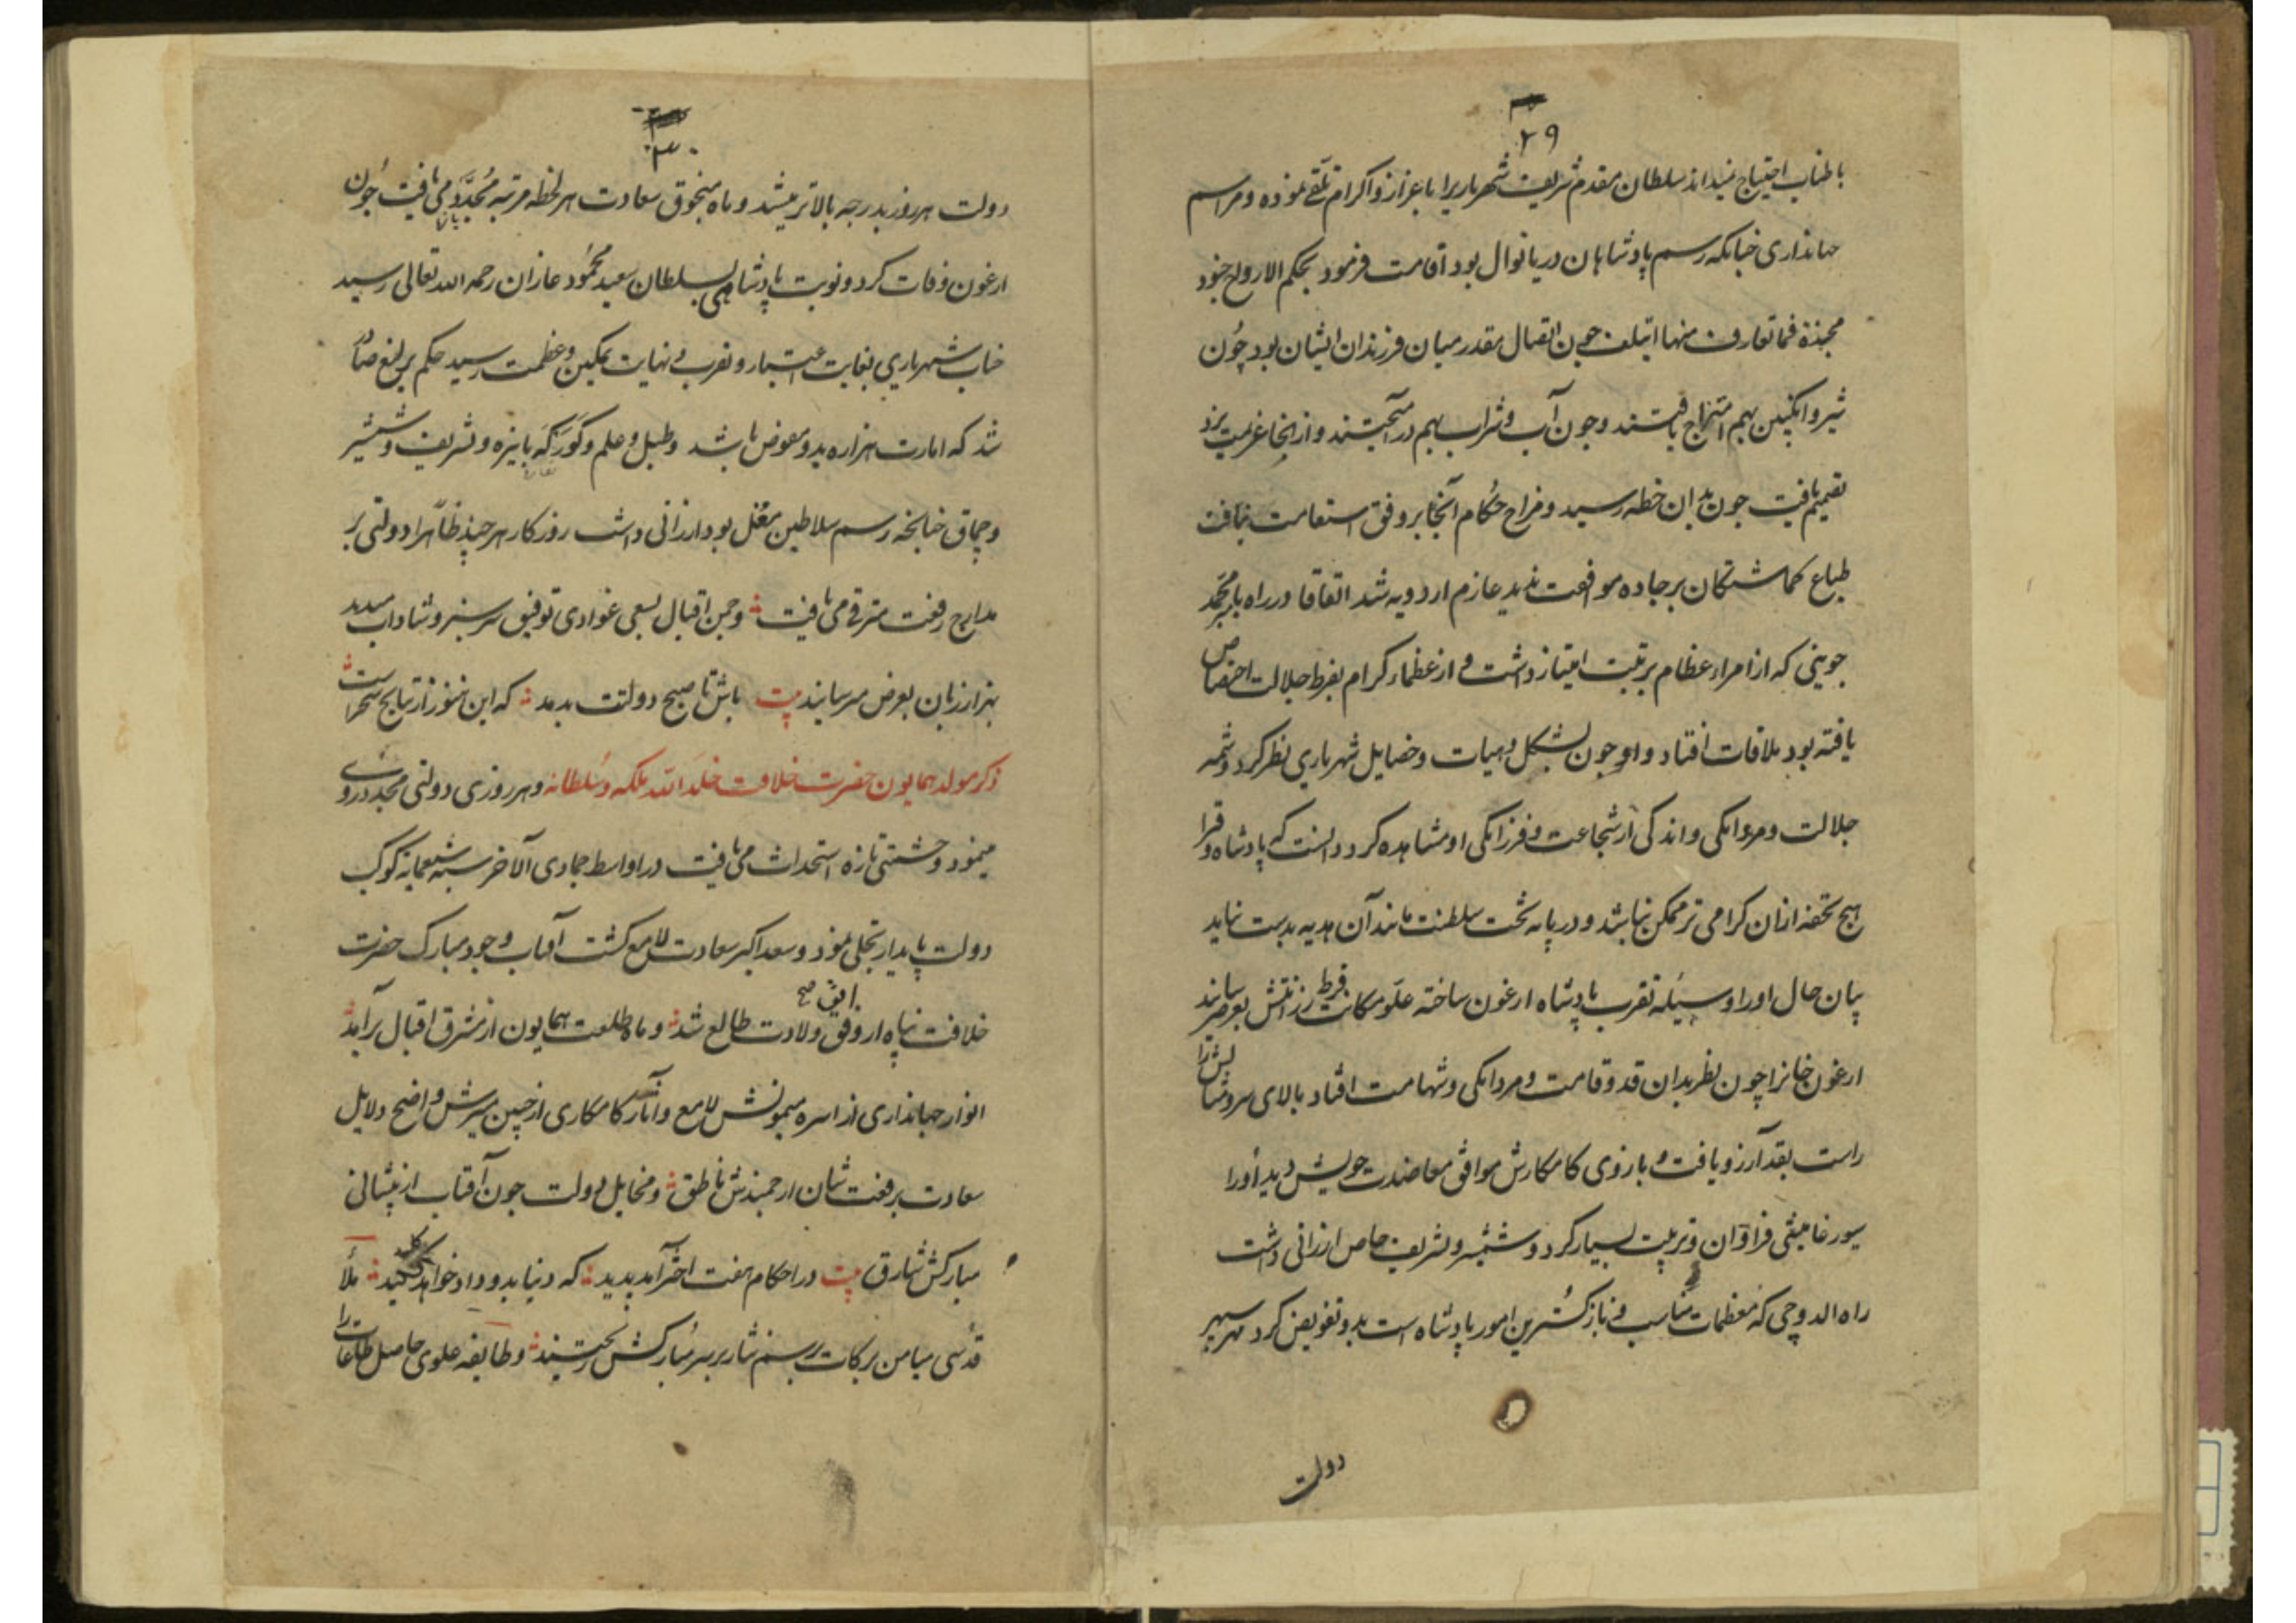 ۲۹
باطناب احتیاج نمیداند سلطان مقدم شریف شهریاریرا باعزاز و اکرام تلقی نموده و مراسم
جهانداری چنانکه رسم پادشاهان دریا نوال بود اقامت فرمود بحکم الارواح جنود
مجندة فما تعارف منها ائتلف چون اتصال مقدر میان فرزندان ایشان بود چون
شیر و انکبین بهم امتزاج یافتند و چون آب و شراب بهم درآمیختند و از انجا عزیمت یزد
تصمیم یافت چون بدان خطه رسید و مزاج حکام آنجا بر وفق استقامت نیافت
طباع کماشتکان بر جاده موافقت ندید عازم اردویه شد اتفاقا در راه بامیر محمد
جوینی که از امراء عظام بر تبت امتیاز داشت و از عظماء کرام بفرط جلالت اختصاص
یافته بود ملاقات افتاد و او چون بشکل و هیات و خصایل شهریاری نظر کرد و شمه
جلالت و مردانکی و اندکی از شجاعت و فرزانکی او مشاهده کرد دانست که پادشاه وقرا
هیچ تحفه ازان کرامی تر ممکن نباشد و در پایه تخت سلطنت مانند آن هدیه بدست نیاید
بیان حال او را وسیله تقرب پادشاه ارغون ساخته علو مکانت و فرط رزانتش بعرض رسانید
ارغون خانرا چون نظر بدان قد و قامت و مردانکی و شهامت افتاد بالای سرو مثالش را
راست بقد آرزو یافت و بازوی کامکارش موافق معاضدت خویش دید أورا
سیورغامیشی فراوان و تربیت بسیار کرد و شمشیر و تشریف خاص ارزانی داشت
راه الدوچی که معظمات مناسب و نازکترین امور پادشاه است بدو تفویض کرد مهر سپهر
دولت
۳۰
دولت هر روز بدرجه بالاتر میشد و ماه منجوق سعادت هر لحظه مرتبه مجدد می یافت چون
ارغون وفات کرد و نوبت پادشاهی بسلطان سعید محمود غازان رحمه الله تعالی رسید
جناب شهریاری بغایت اعتبار و تقرب و نهایت تمکین و عظمت رسید حکم یرلیغ صادر
شد که امارت هزاره بدو مفوض باشد و طبل و علم و کورکه بایزه و تشریف و شمشیر
و چماق چنانچه رسم سلاطین مغل بود ارزانی داشت روزکار هر چند ظاهرا دولتی بر
مدارج رفعت مترقی می یافت و چمن اقبال بسعی غوادی توفیق سرسبز و شاداب میدید
بهزار زبان بعرض میرسانید بیت باش تا صبح دولتت بدمد که این هنوز از نتایج سحرست
ذکر مولد همایون حضرت خلافت خلد الله ملکه و سلطانه و هر روزی دولتی مجدد روی
مینمود و حشمتی تازه استحداث می یافت در اواسط جمادی الآخر سنه سبعمایه کوکب
دولت پایدار تجلی نمود و سعد اکبر سعادت لامع کشت آفتاب وجود مبارک حضرت
افق صح
خلافت پناه از وفق ولادت طالع شد و ماه طلعت همایون از مشرق اقبال برآمد
انوار جهانداری از اسره میمونش لامع و آثار کامکاری از جبین منیرش واضح دلایل
سعادت برفعت شان ارجمندش ناطق و مخایل دولت چون آفتاب از پیشانی
مبارکش شارق بیت در احکام هفت اختر آمد پدید که دنیا بدو داد خواهد کلید ملأ
قدسی میامن برکات برسم نثار بر سر مبارکش ریختند و طایفه علوی حاصل طاعات را